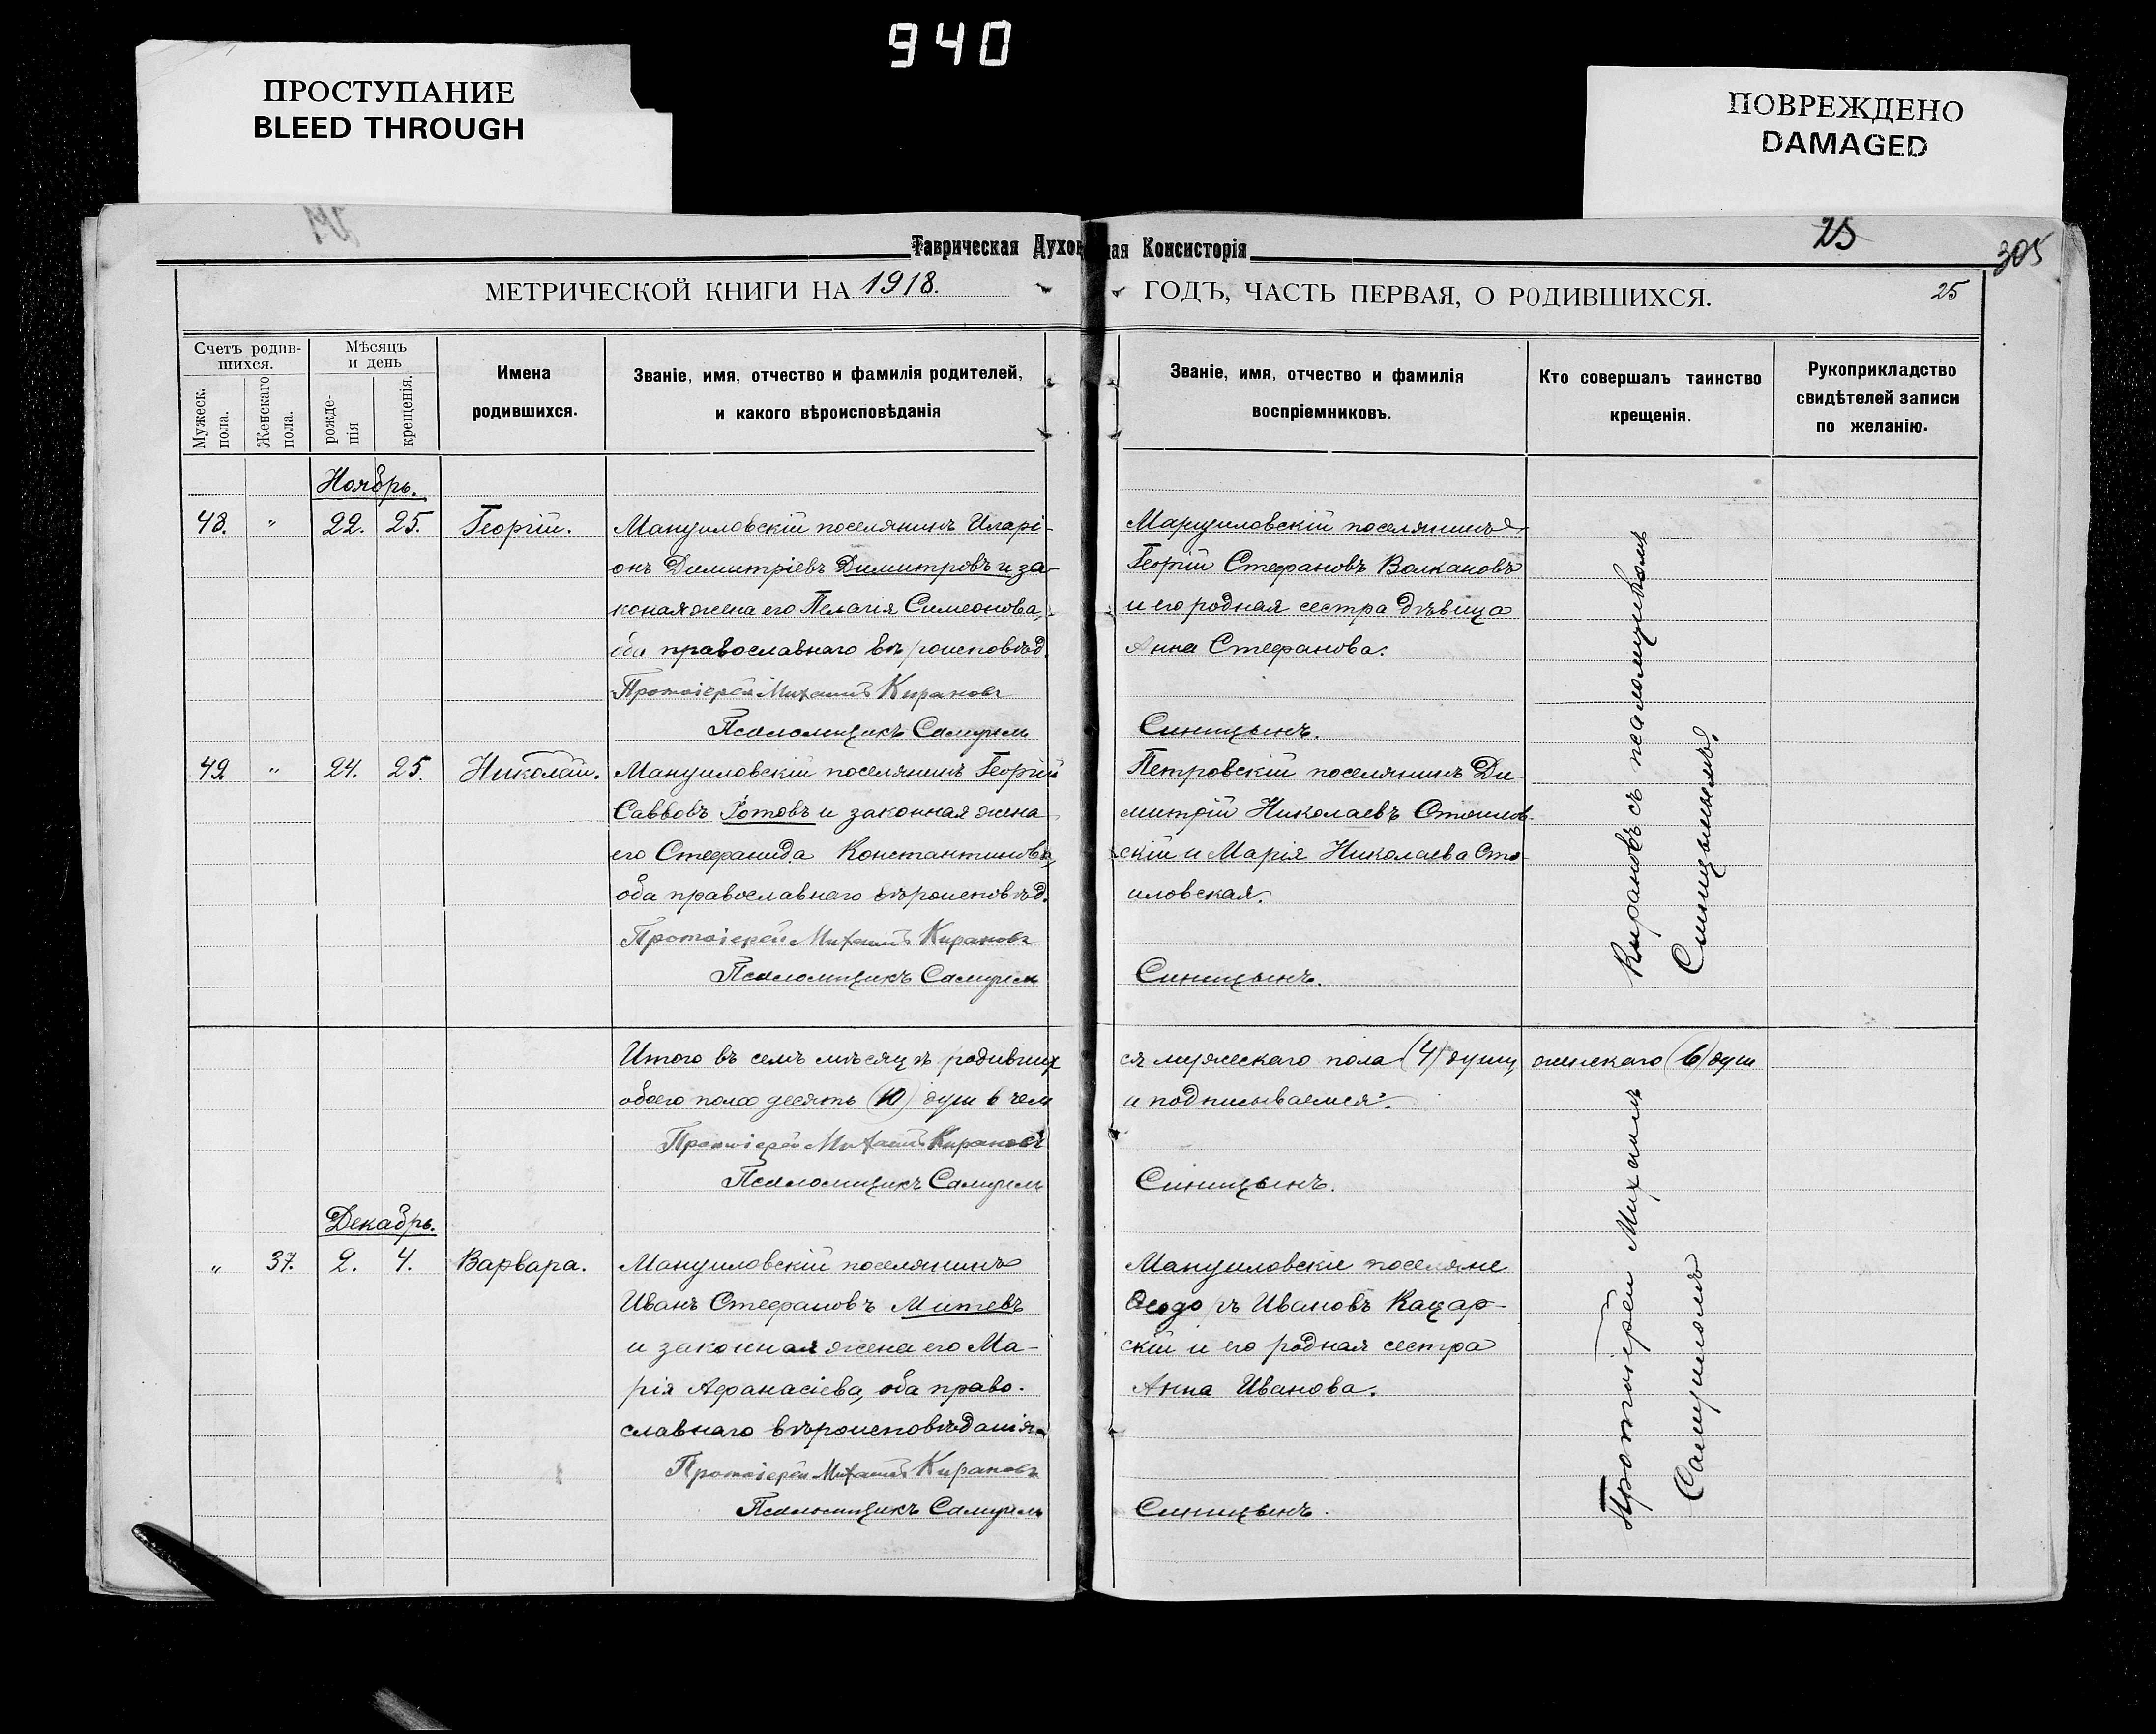 940
ПРОСТУПАНИЕ
BLEED THROUGH
ПОВРЕЖДЕНО
DAMAGED
Таврическая Духовная Консисторія
25
305
МЕТРИЧЕСКОЙ КНИГИ НА 1918. ГОДЪ, ЧАСТЬ ПЕРВАЯ, О РОДИВШИХСЯ.
25
Счетъ родив-
шихся.
Мужеск.
пола.
Женскаго
пола.
Мѣсяцъ
и день
рожде-
нія
крещенія.
Имена
родившихся.
Званіе, имя, отчество и фамилія родителей,
и какого вѣроисповѣданія
Званіе, имя, отчество и фамилія
воспріемниковъ.
Кто совершалъ таинство
крещенія.
Рукоприкладство
свидѣтелей записи
по желанію.
Ноябрь.
48. " 22. 25. Георгій.
Мануиловскій поселянинъ Иларі-
онъ Димитріевъ Димитровъ и за-
коная жена его Пелагія Симеонова,
оба православнаго вѣроисповѣд.
Протоіерей Михаилъ Кирановъ
Псаломщикъ Самуилъ
поселянинъ
Георгій Стефановъ Волкановъ
и его родная сестра дѣвица
Анна Стефанова.
Синицынъ.
49 " 24. 25. Николай.
Мануиловскій поселянинъ Георгій
Саввовъ Готовъ и законная жена
его Стефанида Константинова,
оба православнаго вѣроисповѣд.
Протоіерей Михаилъ Кирановъ
Псаломщикъ Самуилъ
Петровскій поселянинъ Ди-
митрій Николаевъ Стоилов-
скій и Марія Николаева Сто-
иловская.
Синицынъ.
Итого въ семъ мѣсяцѣ родивших
ся мужескаго пола (4) души, женскаго (6) душ
обоего пола десять (10) душ в чем
и подписываемся.
Протоіерей Михаилъ Кирановъ
Псаломщикъ Самуилъ
Синицынъ.
Декабрь.
" 37. 2. 4. Варвара.
Мануиловскій поселянинъ
Иванъ Стефановъ Митевъ
и законная жена его Ма-
рія Афанасіева, оба право-
славнаго вѣроисповѣданія
Протоіерей Михаилъ Кирановъ
Псаломщикъ Самуилъ
Мануиловскіе поселяне
Ѳеодоръ Ивановъ Кацар-
скій и его родная сестра
Анна Иванова.
Синицынъ.
Протоіерей Михаилъ Кирановъ съ псаломщикомъ
Самуиломъ Синицынымъ.